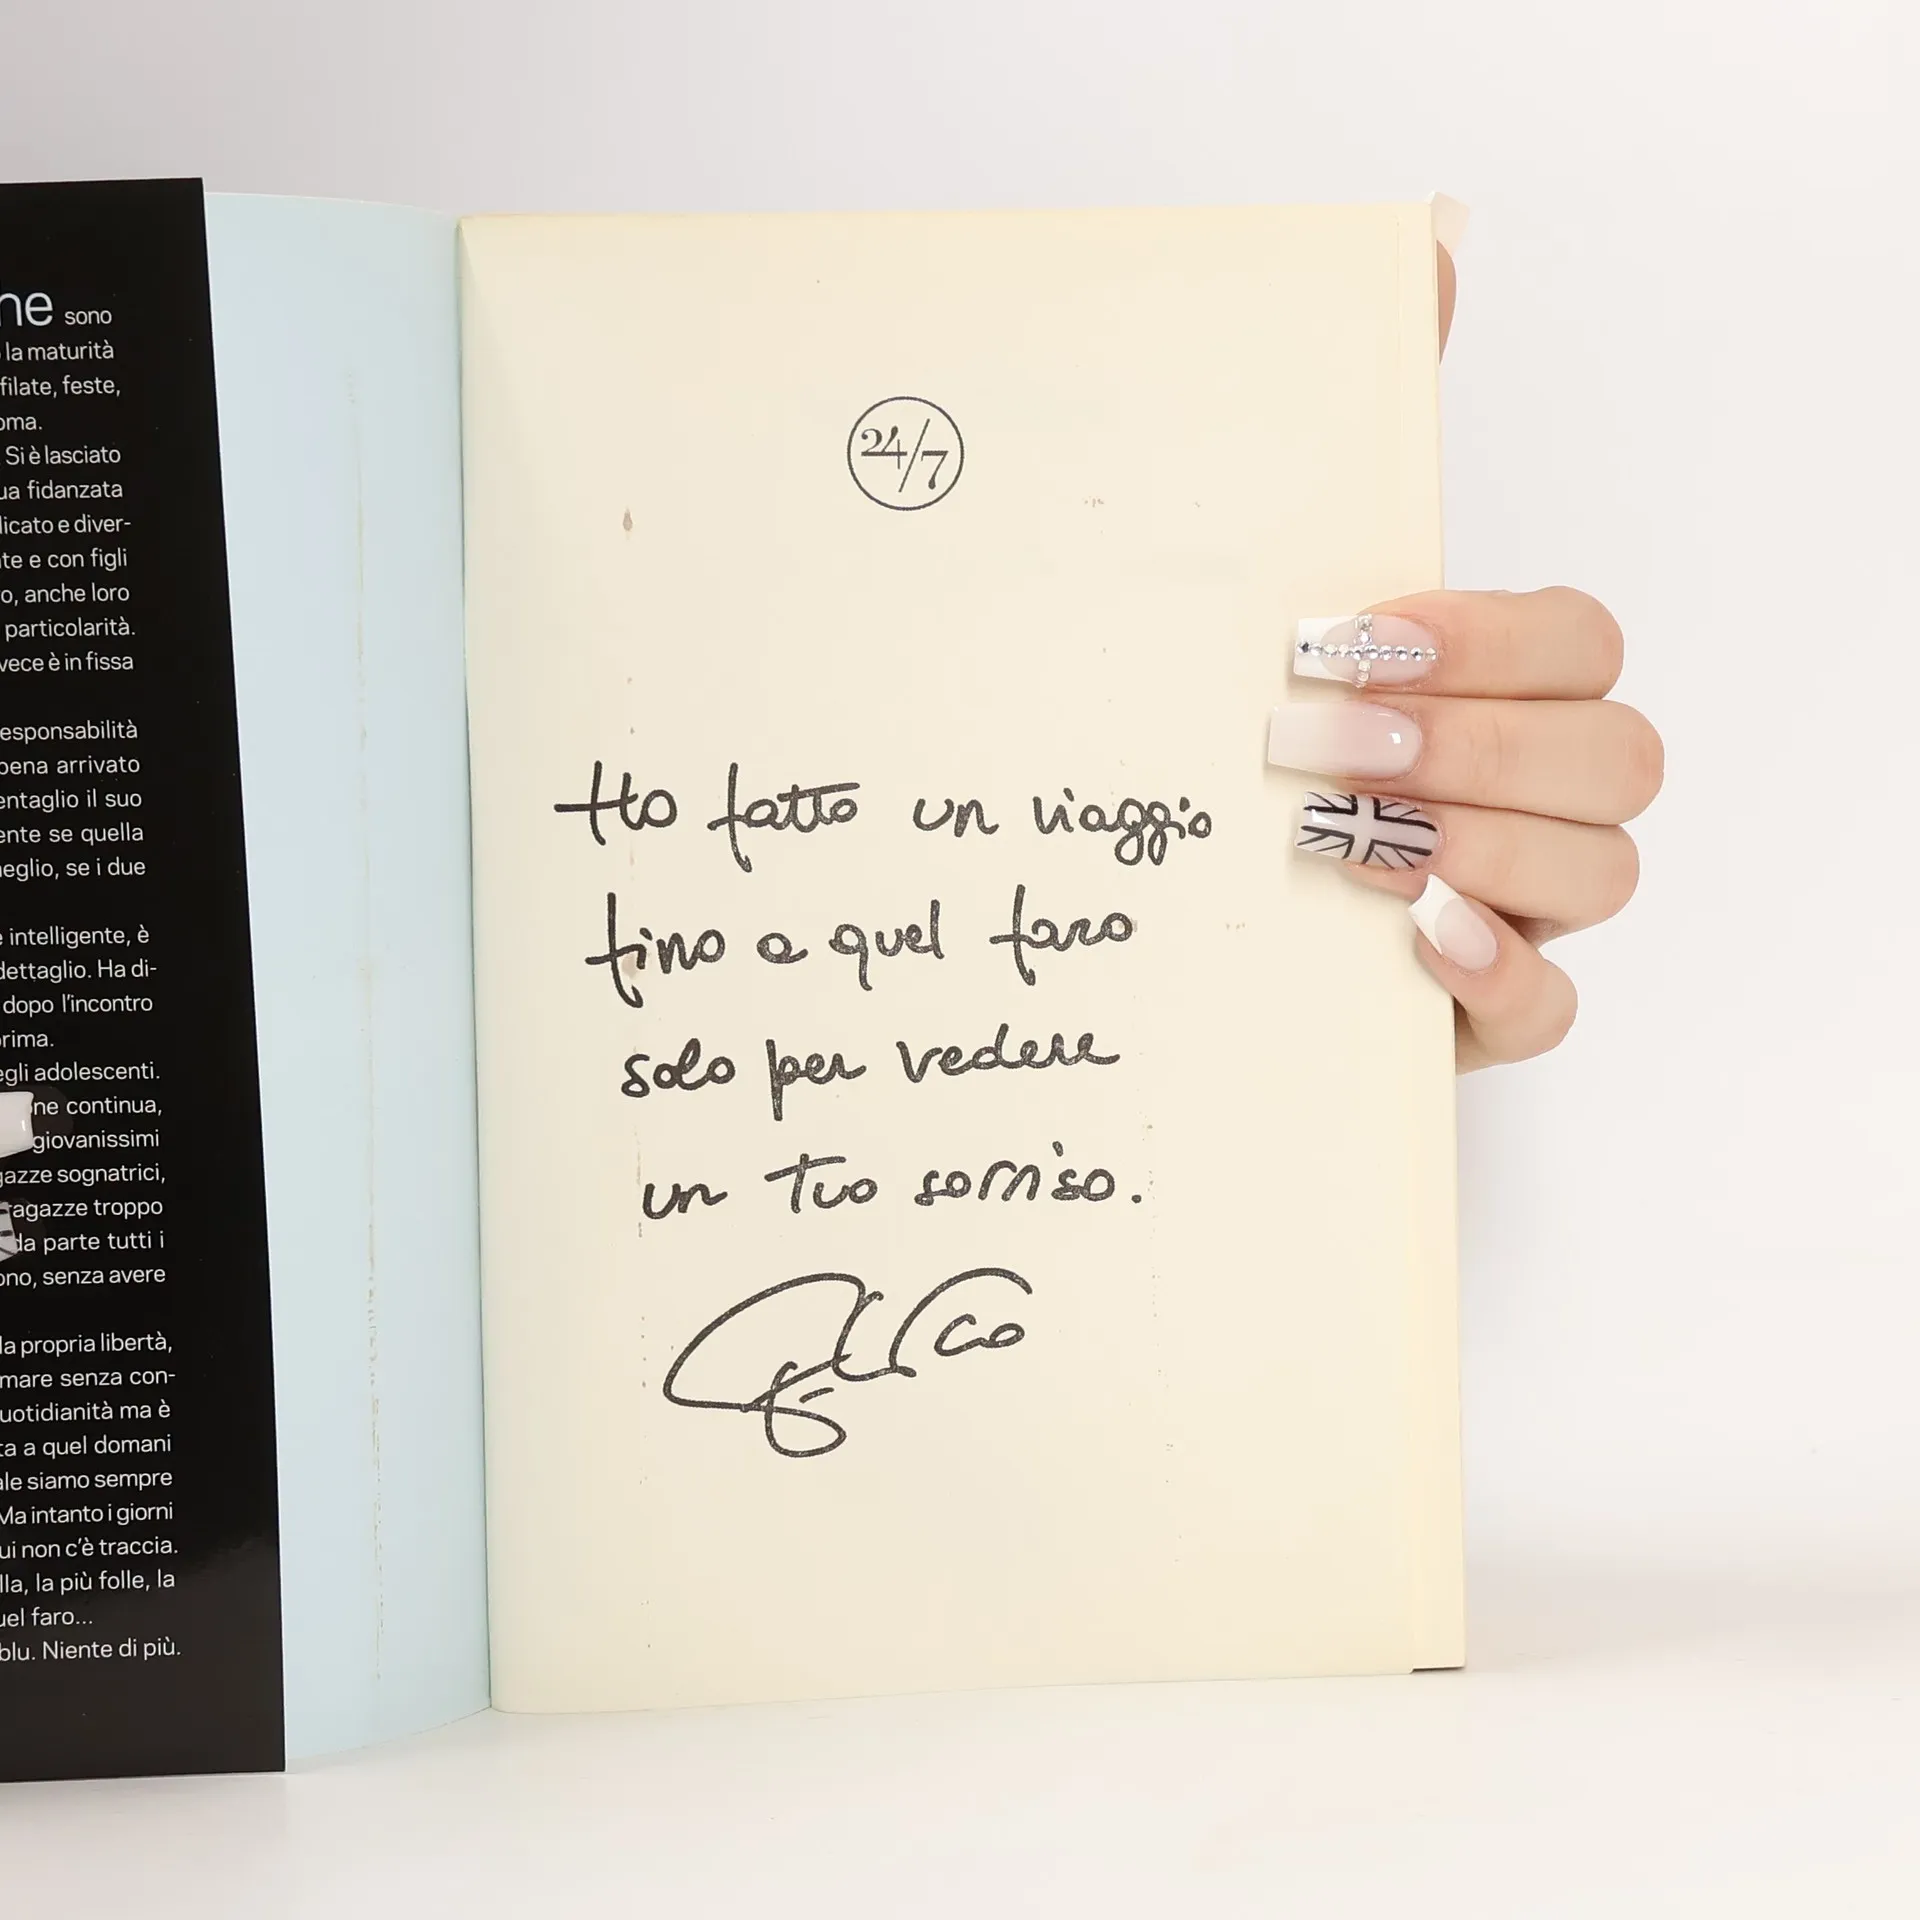 he sono
la maturità
filate, feste,
oma.
Si è lasciato
ua fidanzata
licato e diver-
te e con figli
o, anche loro
particolarità.
vece è in fissa
esponsabilità
pena arrivato
entaglio il suo
ente se quella
neglio, se i due
e intelligente, è
dettaglio. Ha di-
dopo l'incontro
prima.
egli adolescenti.
one continua,
giovanissimi
gazze sognatrici,
ragazze troppo
da parte tutti i
ono, senza avere
la propria libertà,
mare senza con-
uotidianità ma è
ta a quel domani
ale siamo sempre
Ma intanto i giorni
ui non c'è traccia.
lla, la più folle, la
uel faro...
blu. Niente di più.
24/7
Ho fatto un viaggio
fino a quel faro
solo per vedere
un tuo sorriso.